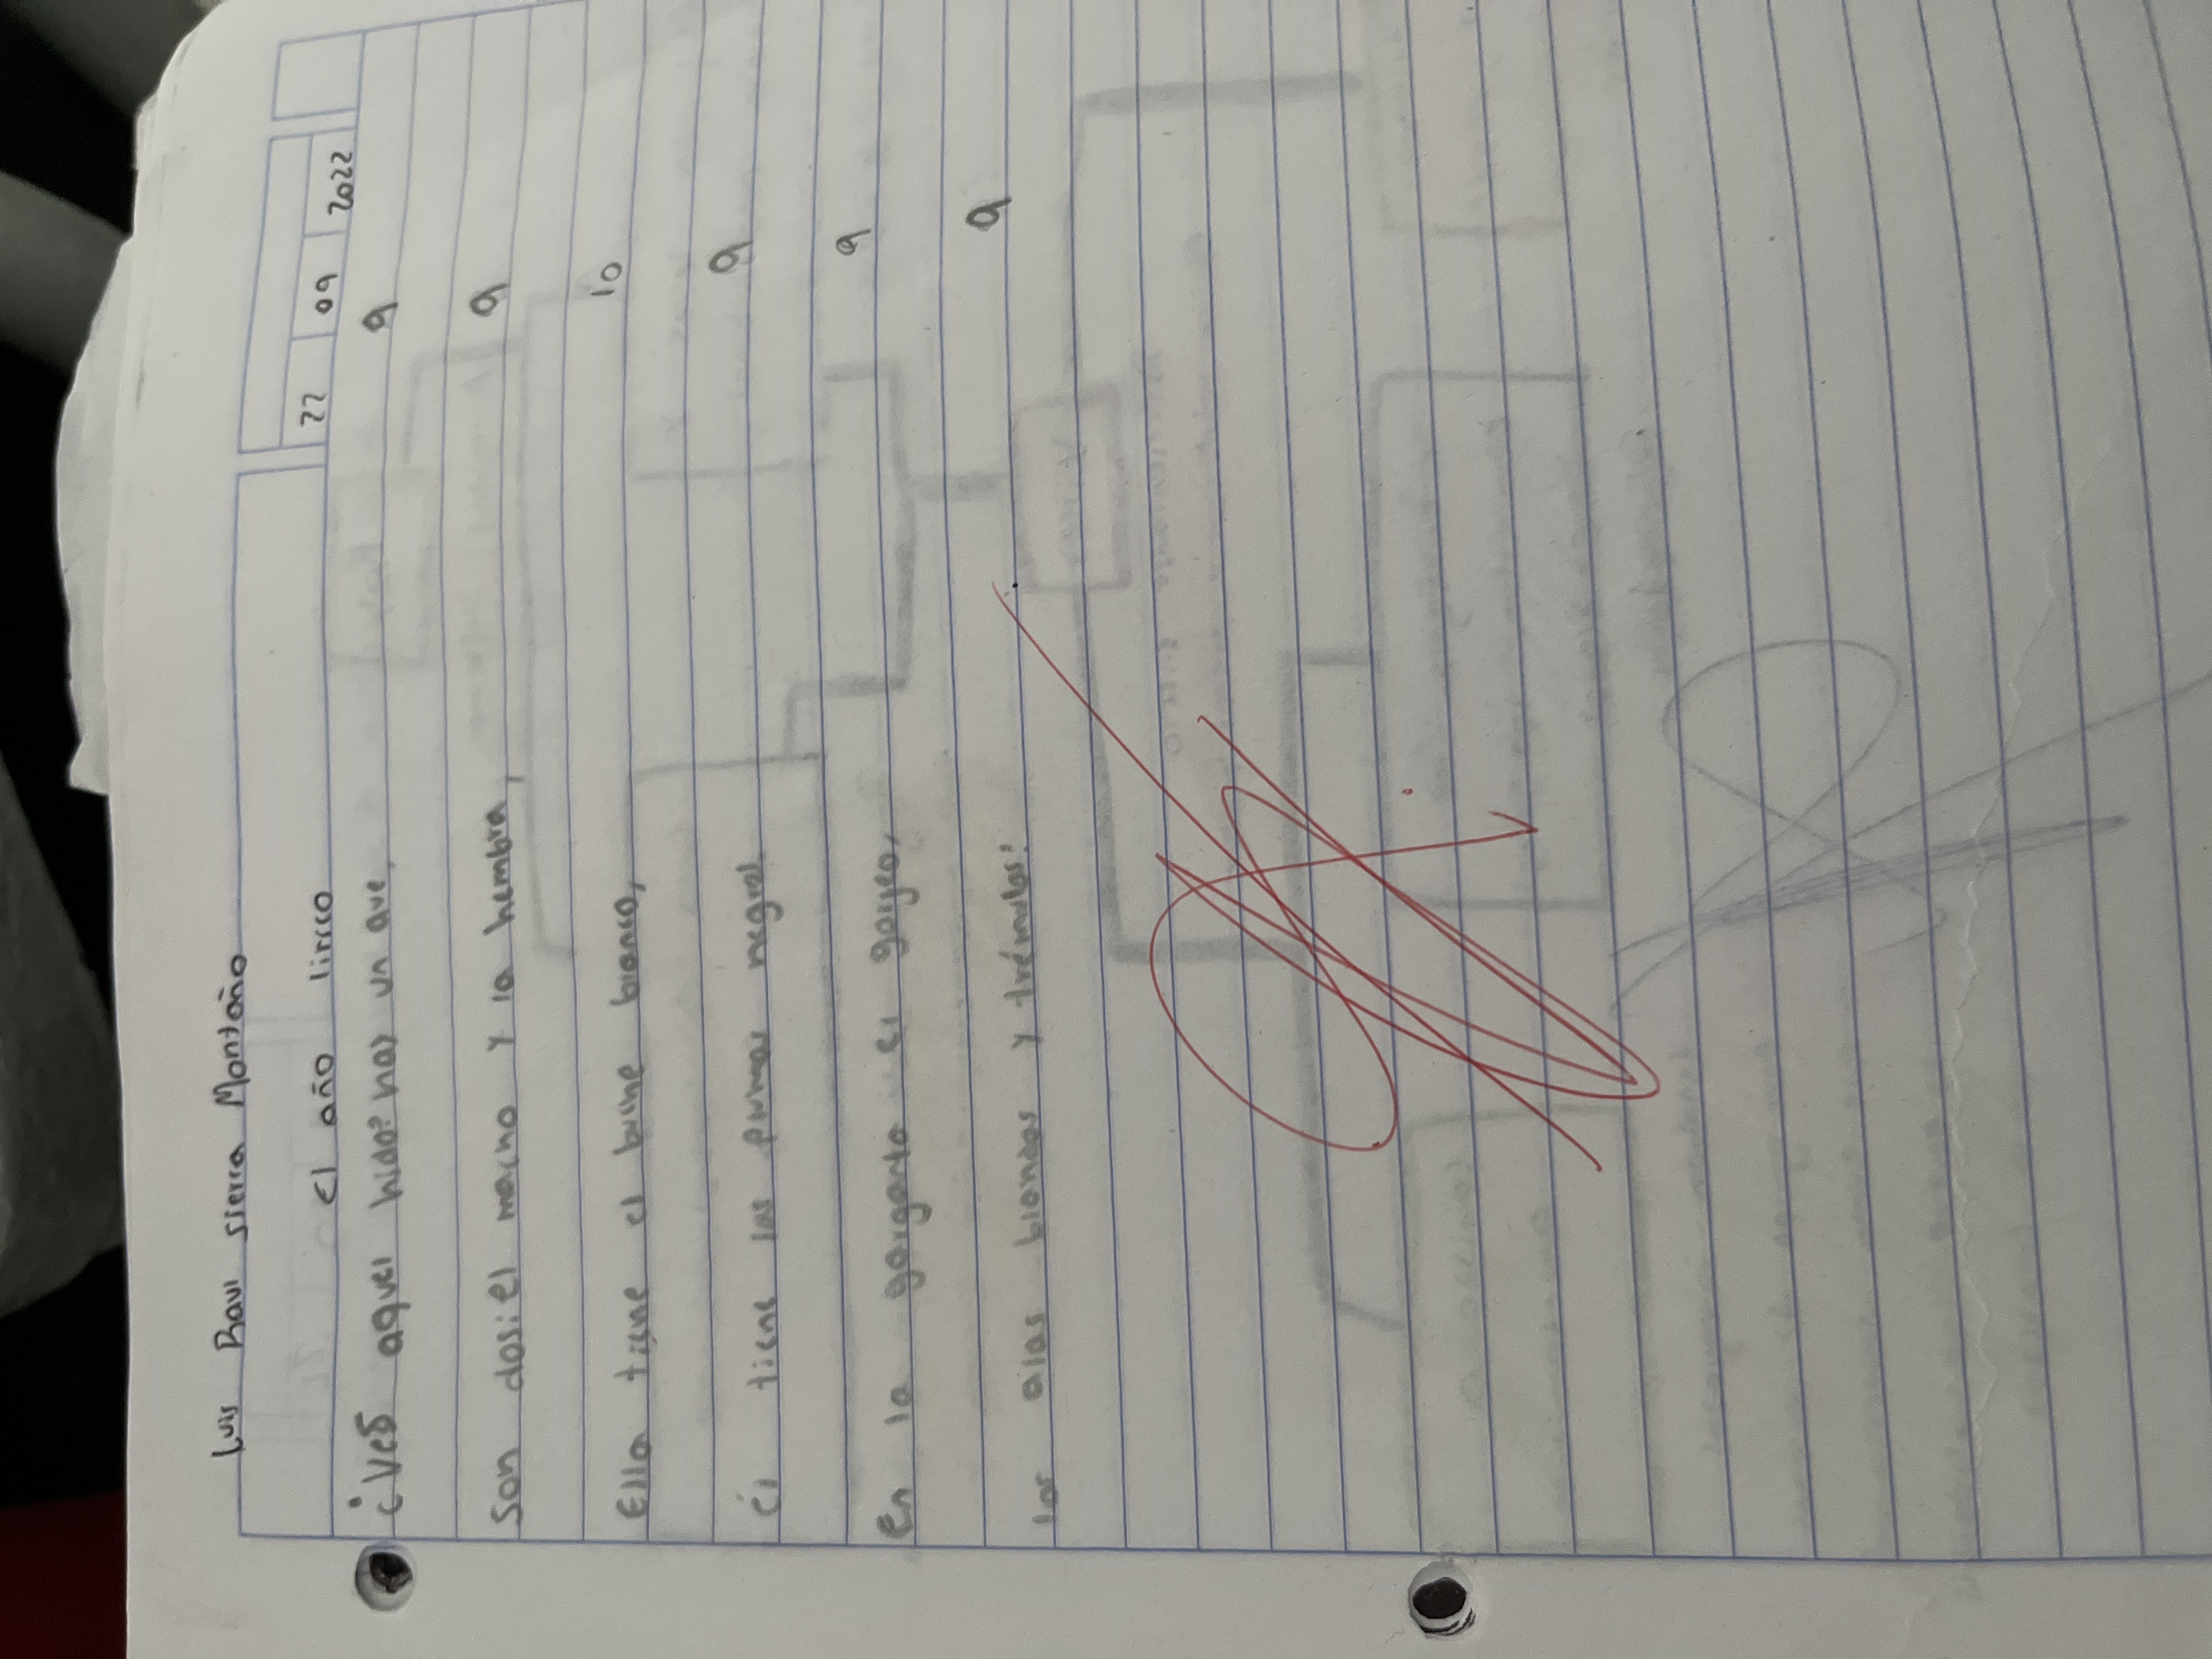 Luis Raul sierra Montaño
El año lirico
22 09 2022
¿Ves aquel nido? hay un ave, 9
Son dos: el macho y la hembra, 9
Ella tiene el buche blanco, 10
él tiene las plumas negras. 9
En la garganta el gorjeo, 9
las alas blandas y trémulas: 9